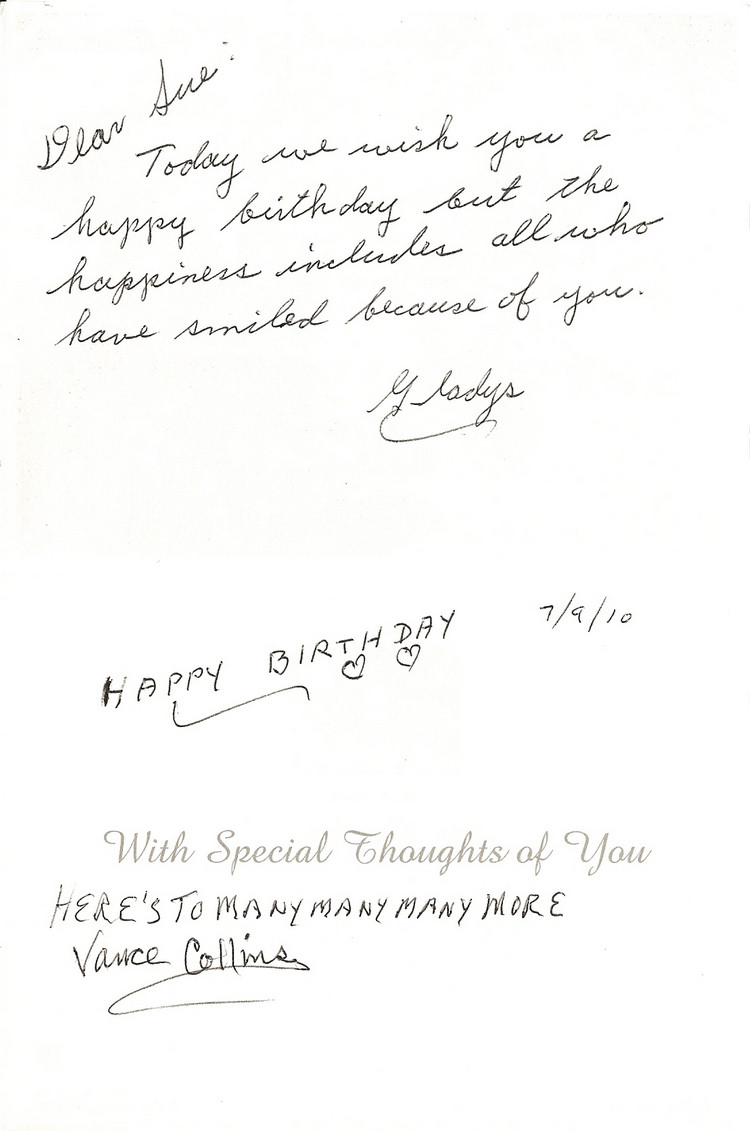 Dear Sue:
Today we wish you a
happy birthday but the
happiness includes all who
have smiled because of you.
Gladys
7/9/10
HAPPY BIRTHDAY
With Special Thoughts of You
HERE'S TO MANY MANY MANY MORE
Vance Collins